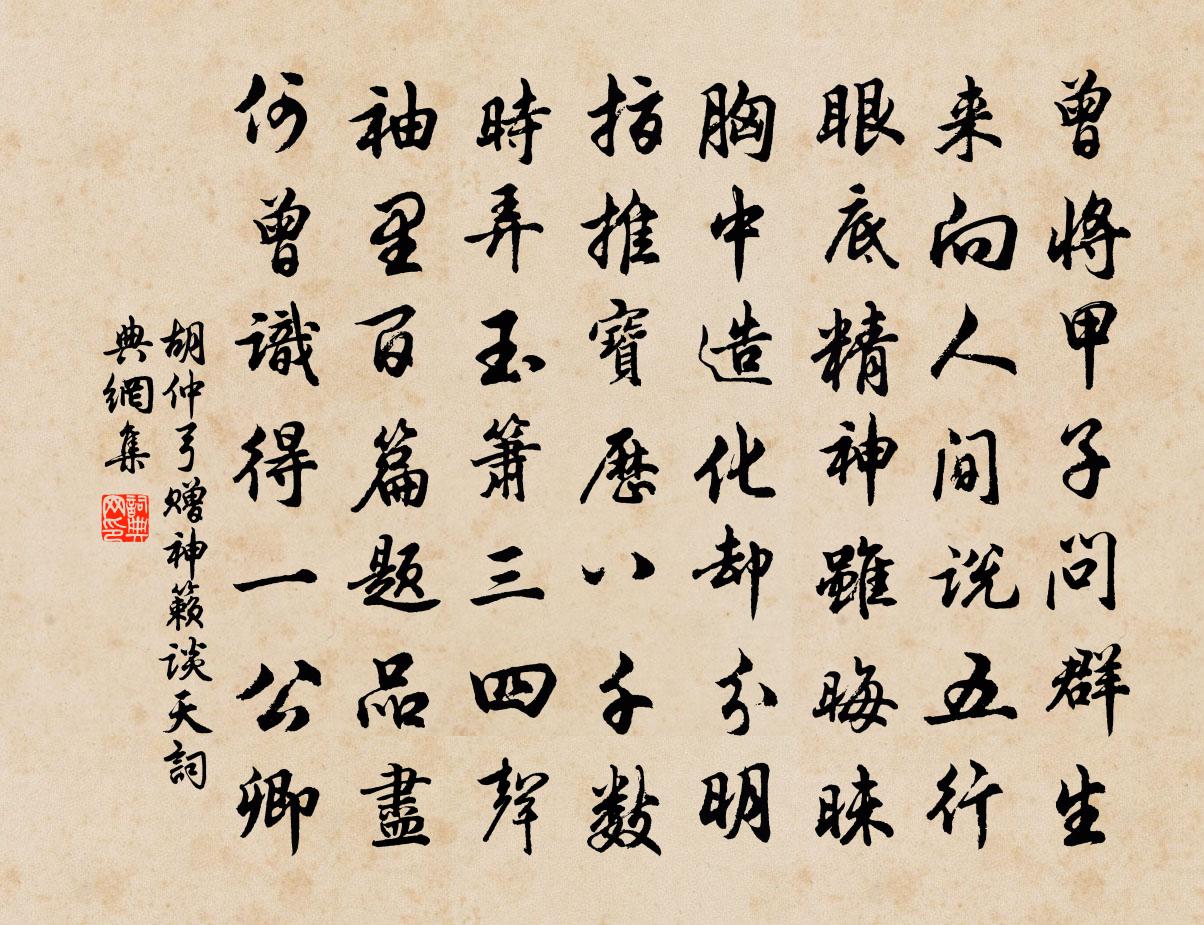 曾將甲子問群生
来向人间说五行
眼底精神雖晦昧
胸中造化却分明
指推寶歷八千數
時弄玉簫三四聲
袖里百篇题品盡
何曾識得一公卿
胡仲弓赠神籁谈天詞
典網集
詞典网印